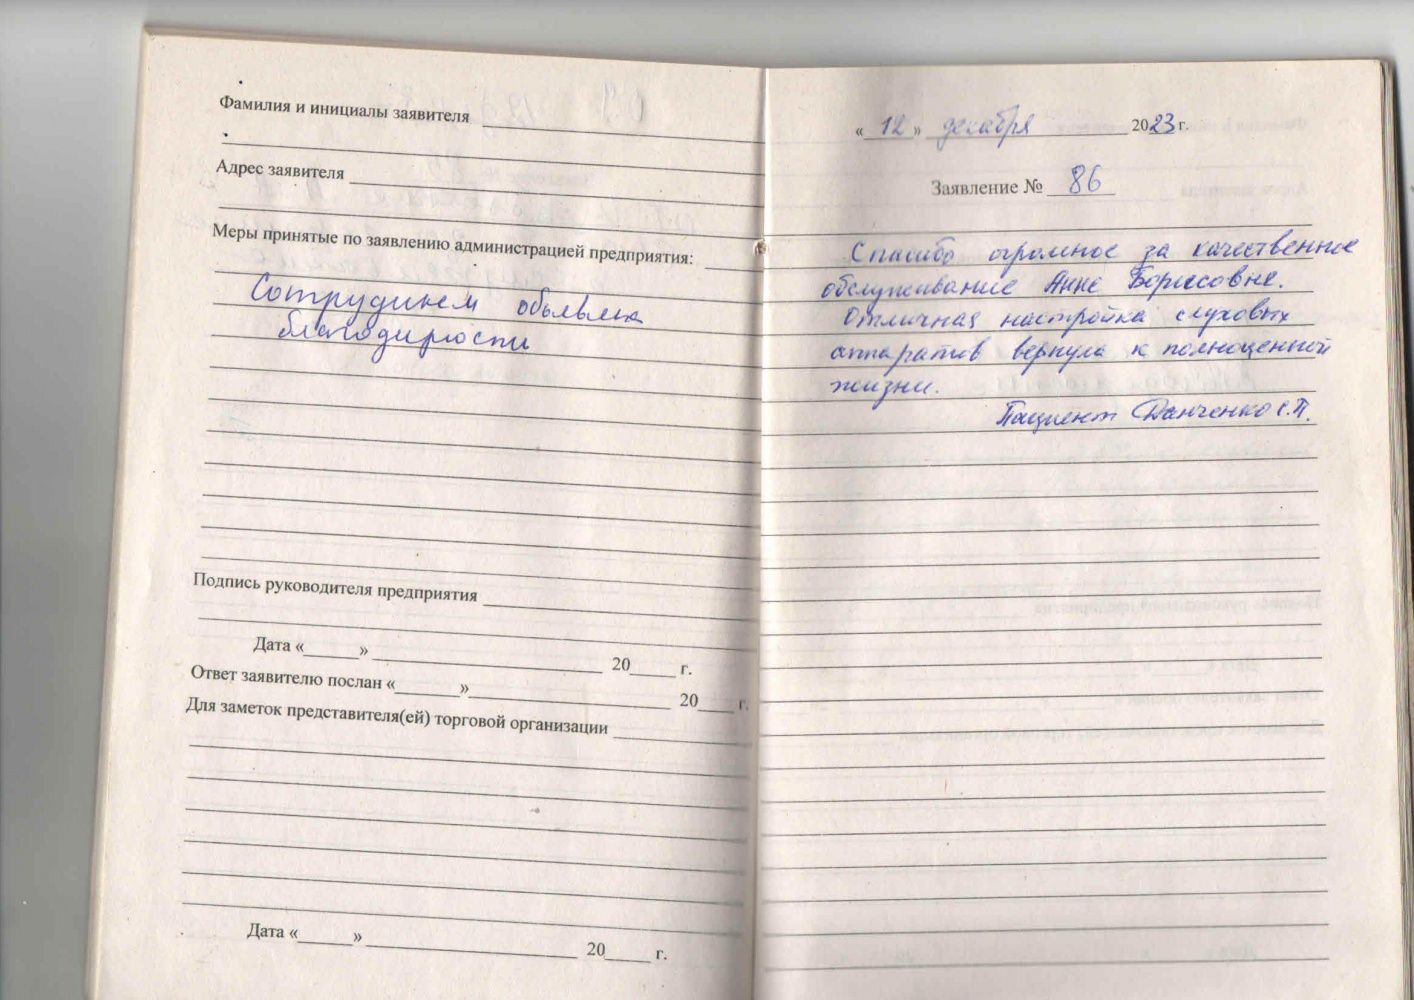 Фамилия и инициалы заявителя
Адрес заявителя
Меры принятые по заявлению администрацией предприятия:
Сотрудникам объявлена
благодарности
Подпись руководителя предприятия
Дата «______» ______ 20____ г.
Ответ заявителю послан «______» ______ 20____ г.
Для заметок представителя(ей) торговой организации
Дата «______» ______ 20____ г.
« 12 » декабря 2023 г.
Заявление № 86
Спасибо огромное за качественное
обслуживание Анне Борисовне.
Отличная настройка слуховых
аппаратов вернула к полноценной
жизни.
Пациент Данченко С.П.